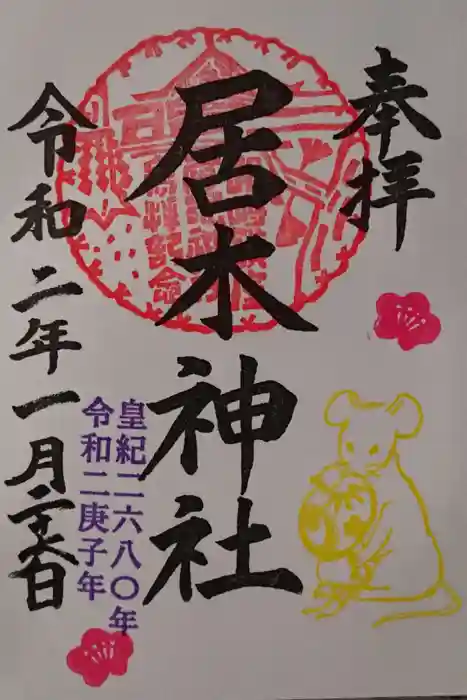 奉拝
居木神社
皇紀二六八〇年
令和二庚子年
令和二年一月二十六日